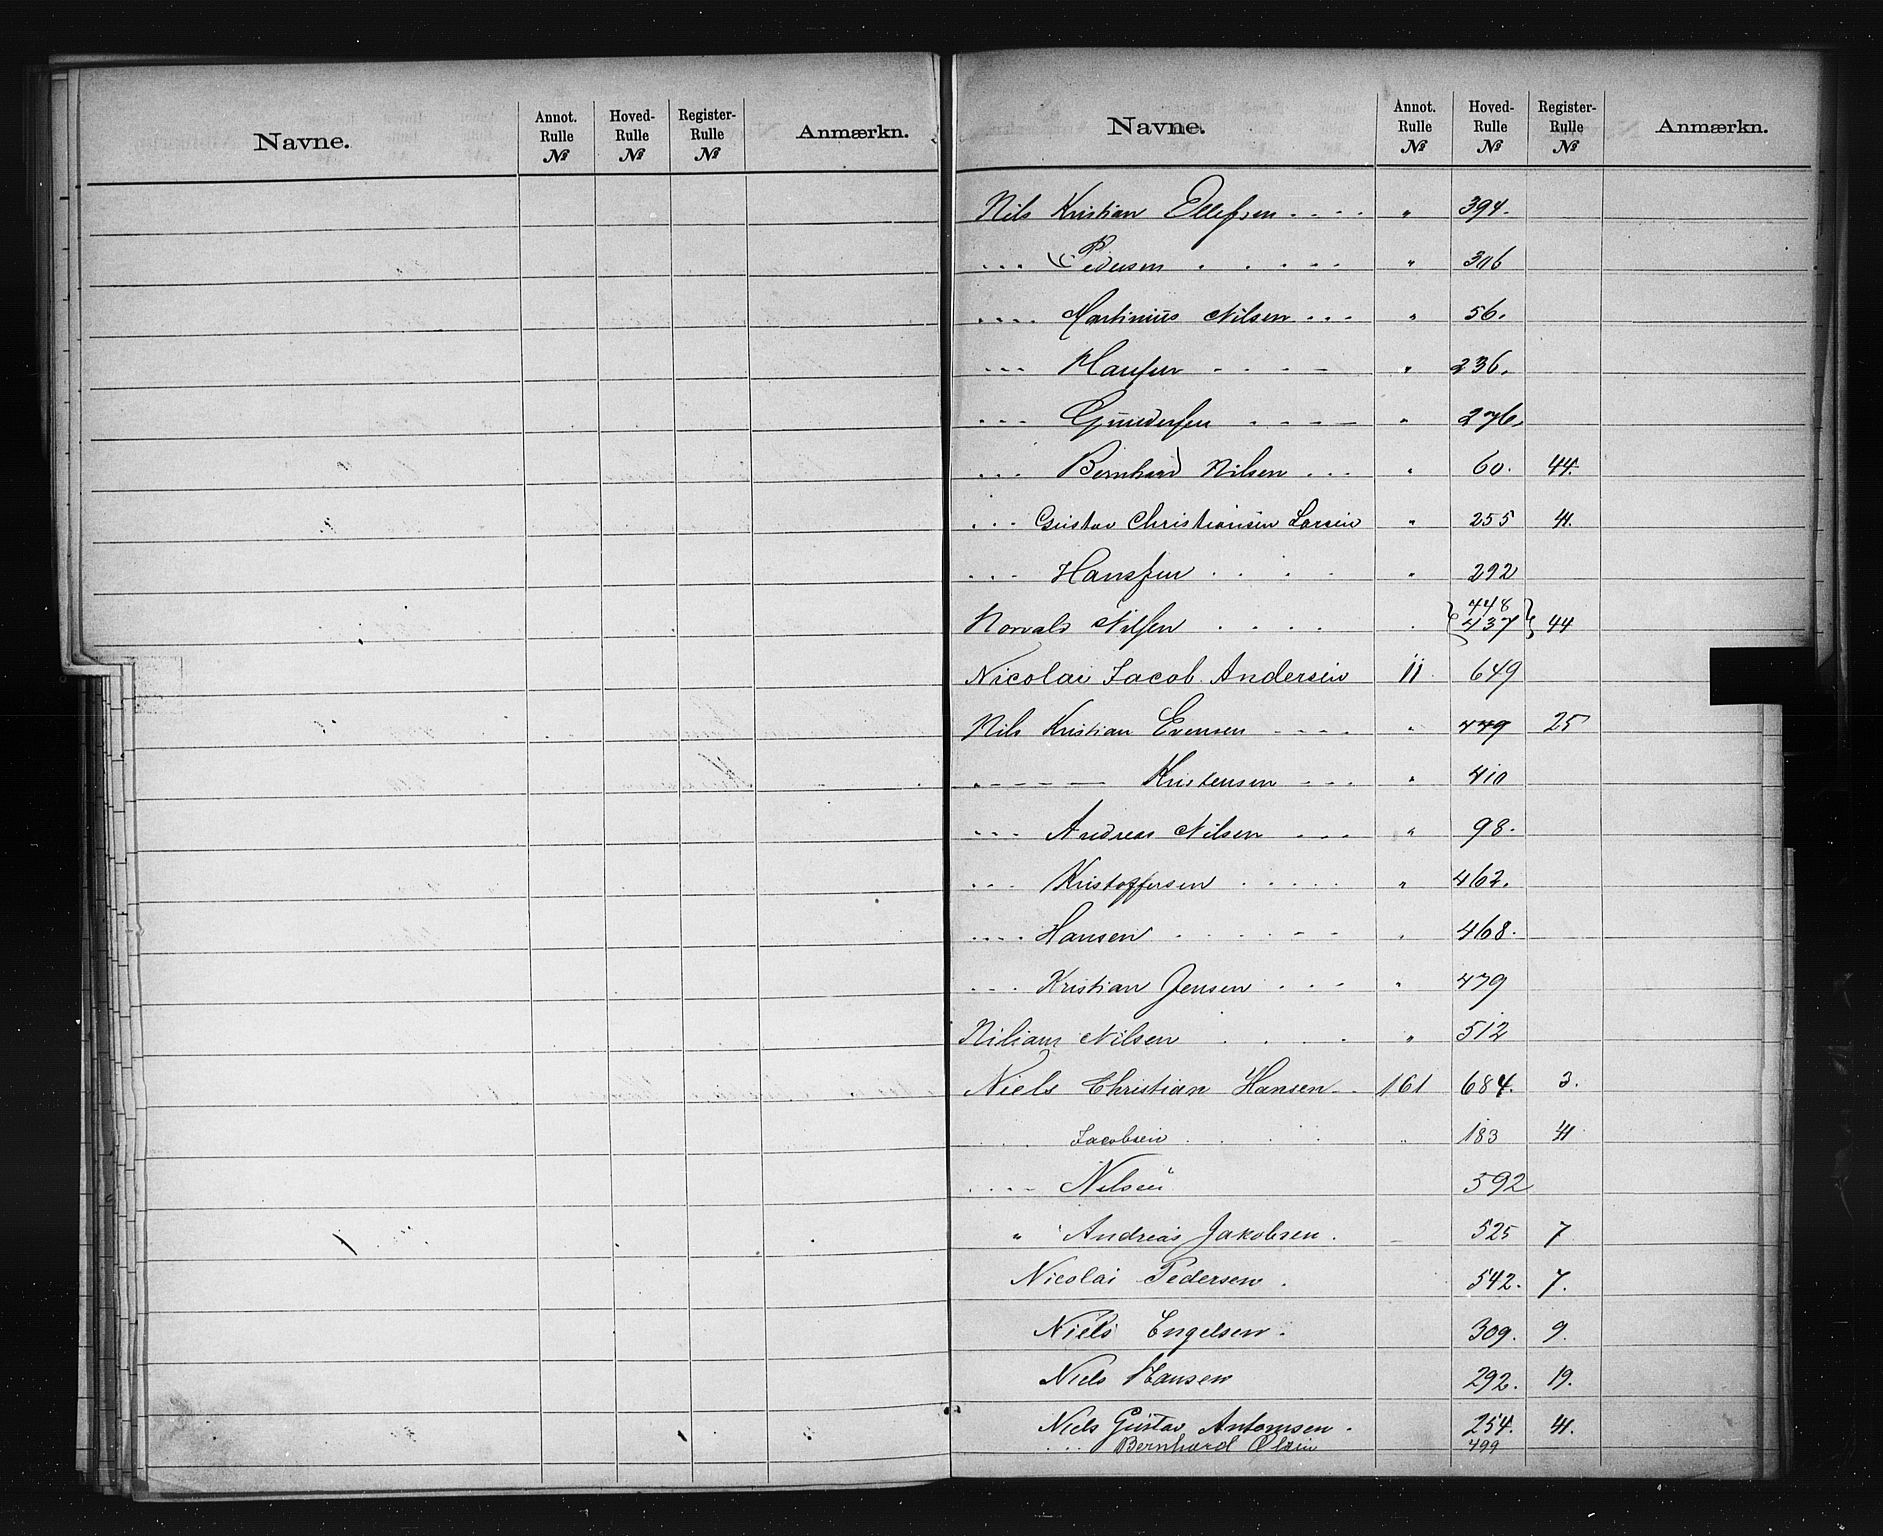 Navne. Annot. Rulle № Hoved-Rulle № Register-Rulle № Anmærkn.
Navne. Annot. Rulle № Hoved-Rulle № Register-Rulle № Anmærkn.
Nils Kristian Ellefsen . . . . " 394.
. . . Pedersen . . . . . " 306
. . . . Martinius Nilsen . . . " 56.
. . . Hansen . . . - " 236.
. . . Gundersen . - - - - " 276.
. . . Bernhard Nilsen . . . " 60. 44.
. . . Gustav Christiansen Larsen " 255 41.
. . . Hanssen . . . . " 292
Norvald Nilsen . . . . . { 448 437 } 44
Nicolai Jacob Andersen 11 649
Nils Kristian Evensen - - - . " 449 25
. - - - — Kristensen - - . " 410
- - - Andreas Nilsen . . . " 98.
. . . Kristoffersen . . . . . " 462.
. . . . Hansen . . . . - - . 468.
. . . Kristian Jensen . . . " 479
Niliam Nilsen . . . . " 512
Niels Christian Hansen - . 161 684. 3.
. . . Jacobsen . . . . " 183 41
. . . - Nilsen 592
" " Andreas Jakobsen . - 525 7
Nicolai Pedersen . 542. 7.
Niels Engelsen . 309. 9.
Niels Hansen 292. 19.
Niels Gustav Antomsen . 254. 41.
. . . Bernhard Olsen 499